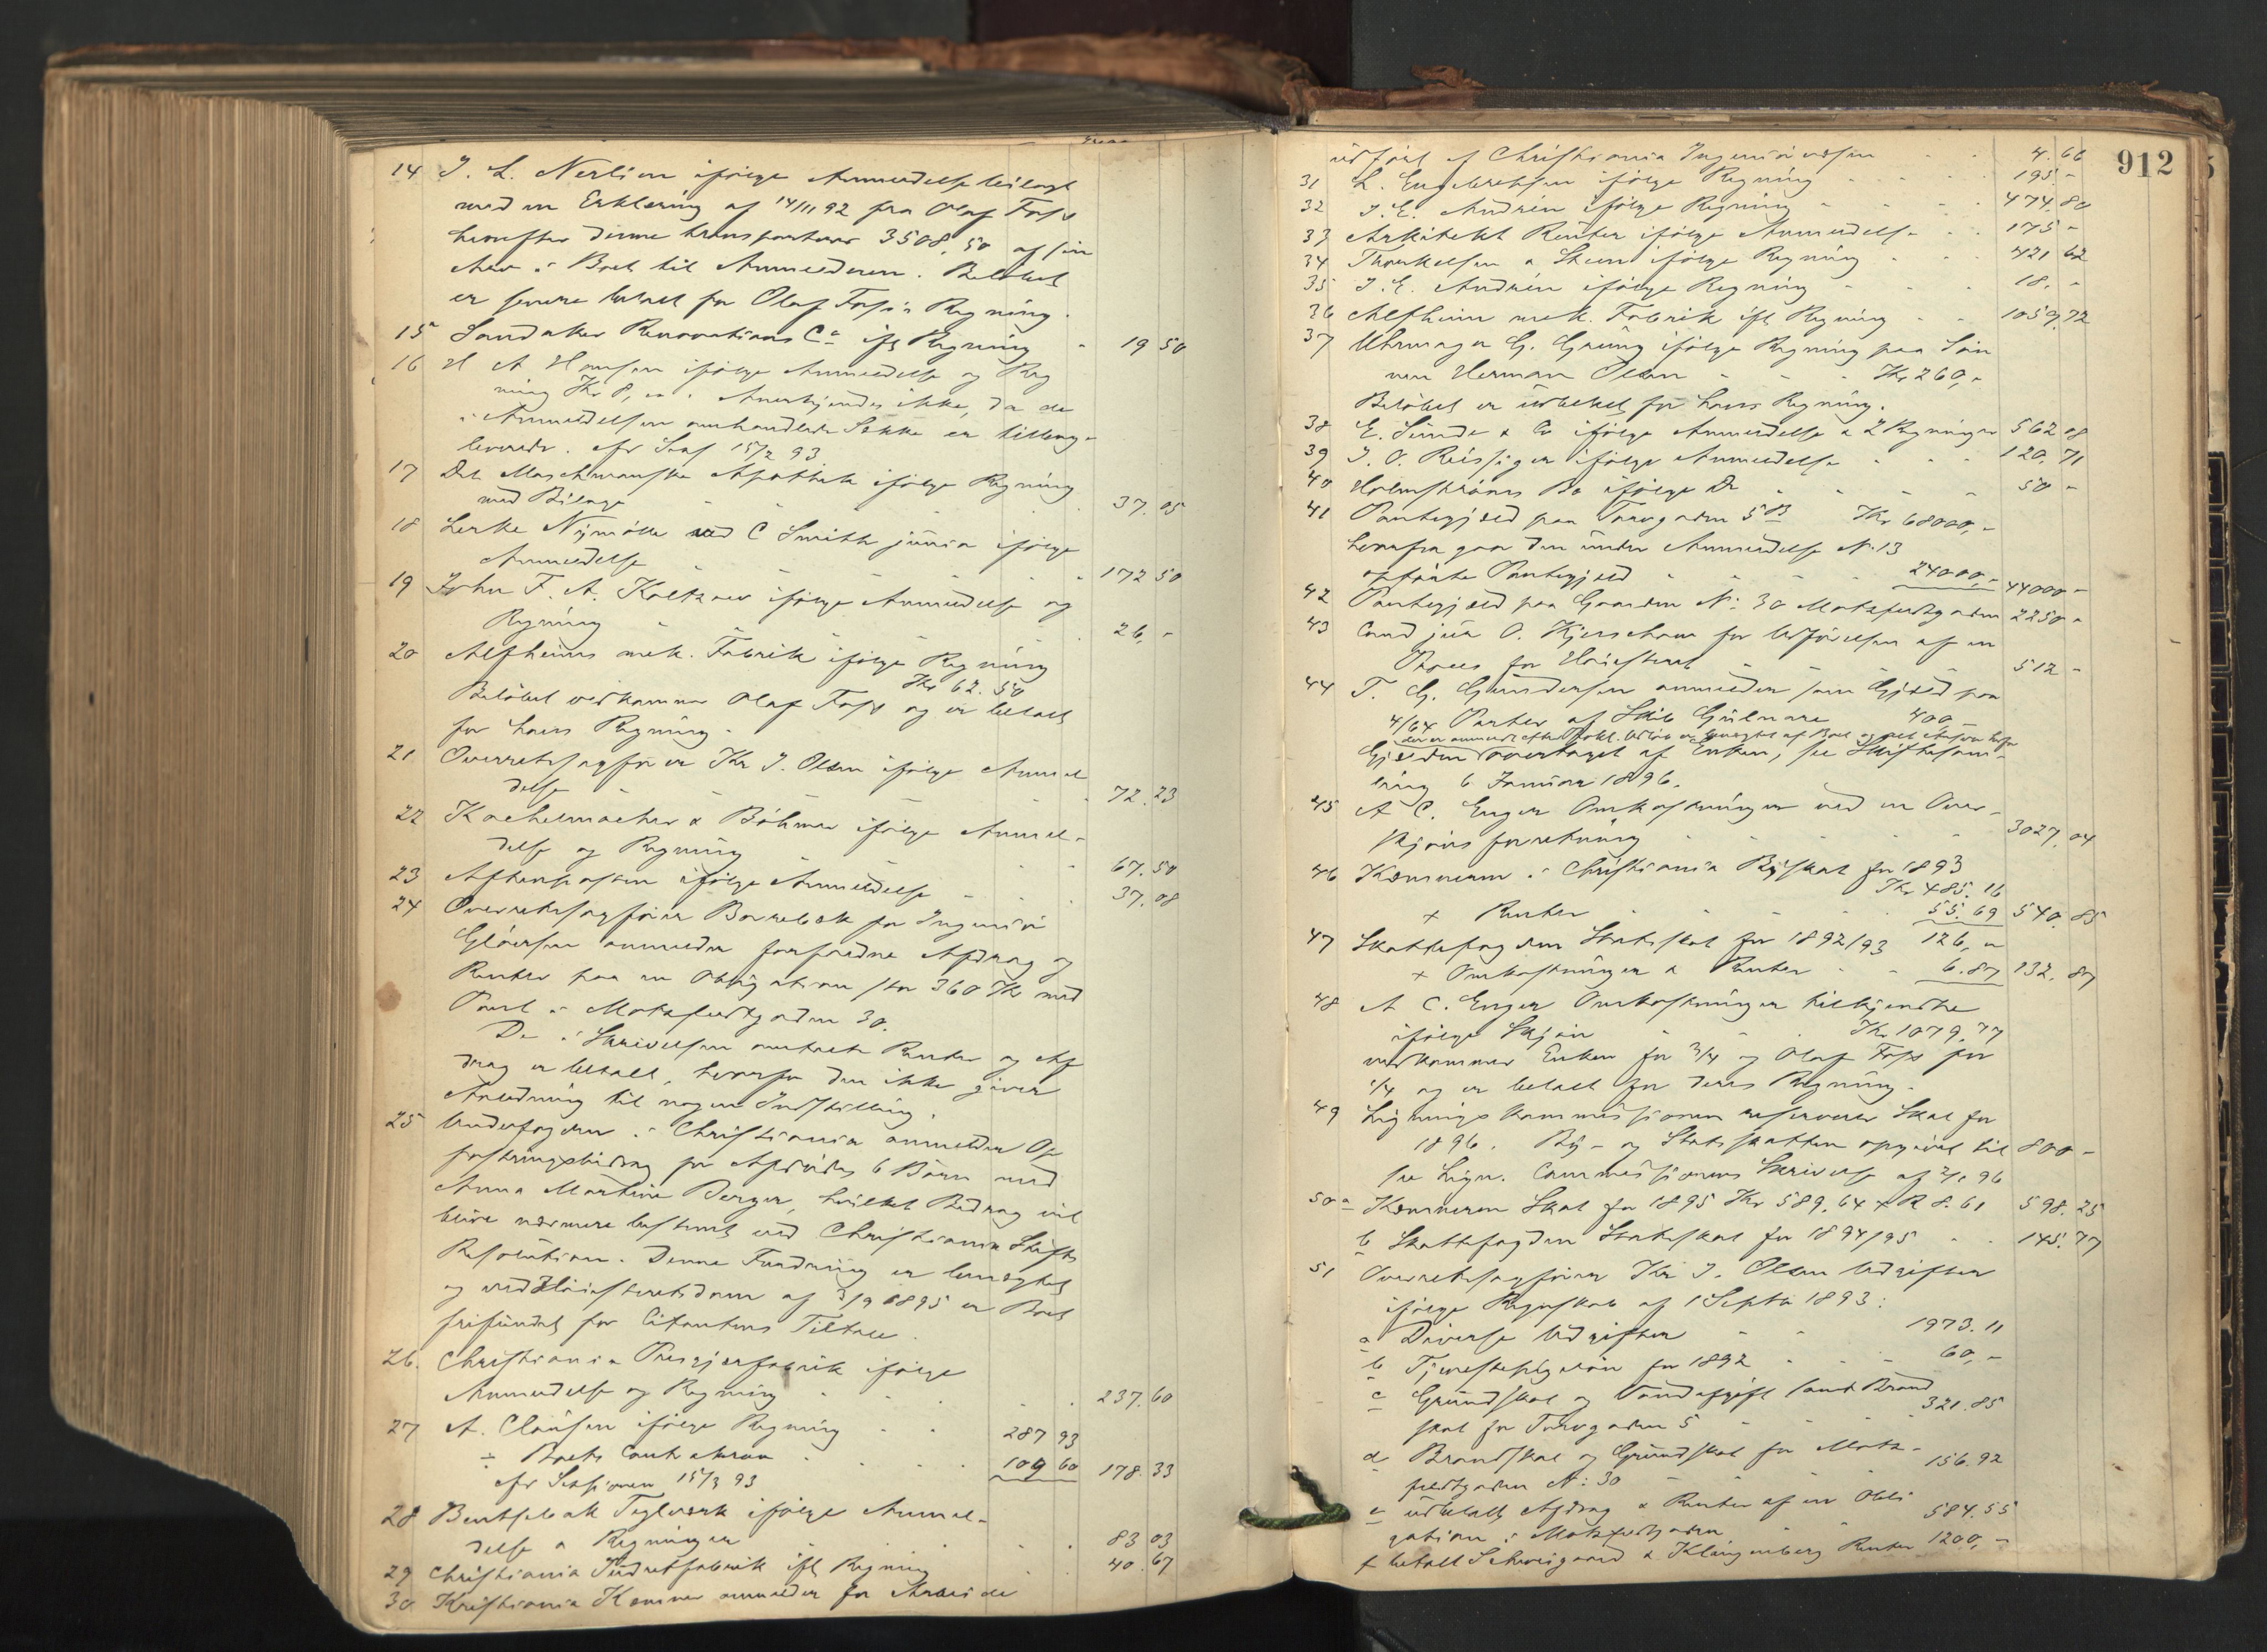 14 J. L. Nerlien ifölge Anmeldelse bilagt
med en Erklæring af 14/11 92 fra Olaf Foss
hvorefter denne transporterer 3508,50 af sin
Arv i Boet til Anmelderen. Belöbet
er senere betalt for Olaf Foss's Regning.
15 Sandaker Renovations Co ifl Regning - 19 50
16 H A Hansen ifölge Anmeldelse og Reg
ning Kr 8, anerkjendes ikke, da de
i Anmeldelsen omhandlede Sække er tilbage
leverede. cfr Saml 15/2 93
17 Det Maschmannske Apothek ifölge Regning
med Bilage 37.05
18 Lerke Nymölle ved C Smith junior ifölge
Anmeldelse 172 50
19 John F. A. Koltzow ifölge Anmeldelse og
Regning 26,-
20 Alfheims mek. Fabrik ifölge Regning
Kr 62.50
Belöbet vedkommer Olaf Foss og er betalt
for hans Regning.
21 Overretssagförer Kr J. Olsen ifölge Anmel
delse 72.23
22 Kachelmacher & Böhmer ifölge Anmel-
delse og Regning 67.50
23 Aftenposten ifölge Anmeldelse 37.08
24 Overretssagförer Borrebæk for Ingeniör
Glöersen anmelder forfaldne Afdrag og
Renter paa en Obligation stor 360 Kr med
Pant i Motzfeldtgaden 30.
De i Skrivelsen omtalte Renter og Af
drag er betalt, hvorfor den ikke giver
Anledning til nogen Indstilling.
25 Underfogden i Christiania anmelder Op
fostringsbidrag for Afdödes 6 Börn med
Anna Martine Berger, hvilket Bidrag vil
blive nærmere bestemt ved Christiania Stifts
Resolution. Denne Fordring er benægtet
og ved Höiesteretsdom af 3/9 1895 er Boet
frifundet for Citantens Tiltale.
26. Christiania Presgjærfabrik ifölge
Anmeldelse og Regning 237.60
27 A. Clausen ifölge Regning 287 93
÷ Boets Contrakrav 109 60 178.33
cfr Sessionen 15/3 93
28 Bentsebak Teglværk ifölge Anmel-
delse & Regninger 83 03
29 Christiania Pudretfabrik ifl Regning 40.67
30 Kristiania Kemner anmelder for Arbeide
912
udfört af Christiania Ingeniörvæsen 4.66
31 L. Engebretsen ifölge Regning 195.-
32 J. E. Andrén ifölge Regning 474.80
33 Arkitekt Reuter ifölge Anmeldelse 175 -
34 Thorkelsen & Steen ifölge Regning 421 62
35 J. E. Andrén ifölge Regning 18.-
36 Alfheim mek. Fabrik ifl Regning 1059.72
37 Uhrmager G. Grüning ifölge Regning paa Sön
nen Herman Olsen Kr 260,-
Belöbet er udbetalt for hans Regning.
38 E. Sunde & Co ifölge Anmeldelse & 2 Regninger 562 08
39 J. O. Reissiger ifölge Anmeldelse 120.71
40 Holmströms Bo ifölge Do 50 -
41 Pantegjæld paa Torvgaden 5B Kr 68000,-
hvorfra gaar den under Anmeldelse No 13
opförte Pantegjæld 24000,- 44000 -
42 Pantegjæld paa Gaarden No 30 Motzfeldtgaden 2250 -
43 Cand jur O. Kjerschow for Udförelsen af en
Proces for Höiesteret 512 -
44 T. G. Gundersen anmelder som Gjæld paa
4/64 Parter af Skib Gulnare 400,-
Gjælden overtaget af Enken, se Skiftesam-
ling 6 Januar 1896.
45 A C. Enger Omkostninger ved en Over-
skjönsforretning 3027.04
46 Kæmneren i Christiania Byskat for 1893
Kr 485.16
+ Renter 55.69 540.85
47 Skattefogden Statsskat for 1892/93 126,00
+ Omkostninger & Renter 6.87 132.87
48 A C. Enger Omkostninger tilkjendte
ifölge Skjön Kr 1079.77
vedkommer Enken for 3/4 og Olaf Foss for
1/4 og er betalt for deres Regning.
49 Lignings Kommissionen reserverer Skat for
1896. By- og Statsskatten opgivet til 800 -
se Lign. Commissionens Skrivelse af 2/1 96
50 a Kæmneren Skat for 1895 Kr 589.64 + R 8.61 598.25
b Skattefogden Statsskat for 1894/95 145.77
51 Overretssagförer Kr J. Olsen Udgifter
ifölge Regnskab af 1 Septbr 1893:
a Diverse Udgifter 1973.11
b Tjenestepigelön for 1892 60,-
c Grundskat og Vandafgift samt Brand
skat for Torvgaden 5 321.85
d Brandskat og Grundskat for Motz-
feldtgaden No: 30 156.92
e udbetalt Afdrag & Renter af en Obli
gation i Motzfeldtgaden 584.55
f betalt Schweigaard & Klingenberg Renter 1200,-